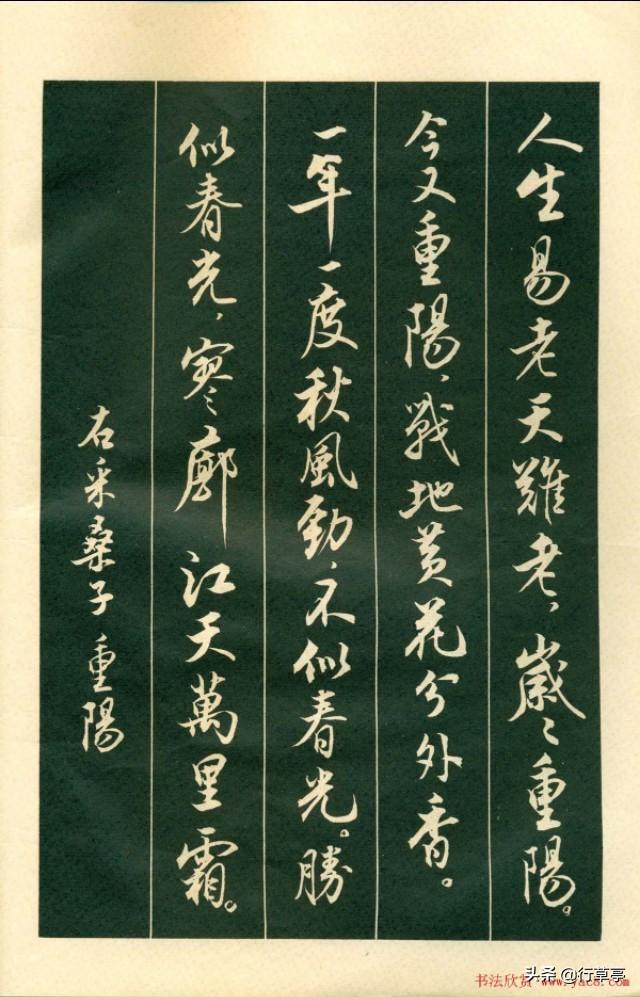 人生易老天難老、歲〻重陽。
今又重陽、戰地黄花分外香。
一年一度秋風勁、不似春光。勝
似春光、寥廓江天萬里霜。
右采桑子 重陽
头条 @行草亭
书法欣赏 www.yac8.com